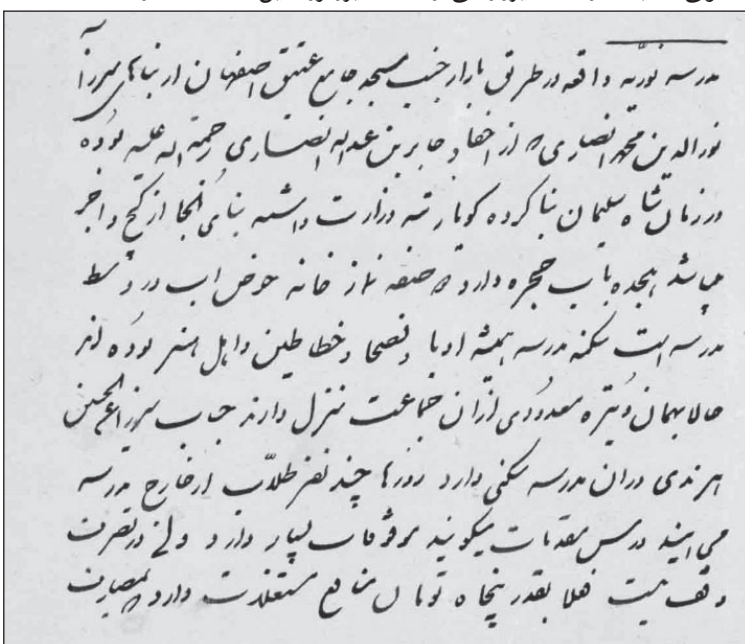 مدرسه نوریه واقعه در طرق بازار جنب مسجد جامع عتیق اصفهان از بناهای میرزا
نورالدین محمد انصاری از احفاد جابر بن عبداله انصاری رحمة اله علیه بوده
در زمان شاه سلیمان بنا کرده گویا رتبه وزارت داشته بنای آنجا از گچ و اجر
میباشد هجده باب حجره دارد صفه نماز خانه حوض اب در وسط
مدرسه است سکنه مدرسه همیشه ادبا و فصحا و خطاطین و اهل هنر بوده اند
حالا بهمان وتیره معدودی از آن جماعت منزل دارند جناب میرزا ابوالحسن
هرندی در ان مدرسه سکنی دارد روزها چند نفر طلاب از خارج مدرسه
می ایند درس مقدمات میگویند موقوفات بسیار دارد ولی در تصرف
وقف نیست فعلا بقدر پنجاه تومان منافع مستغلات دارد بمصارف